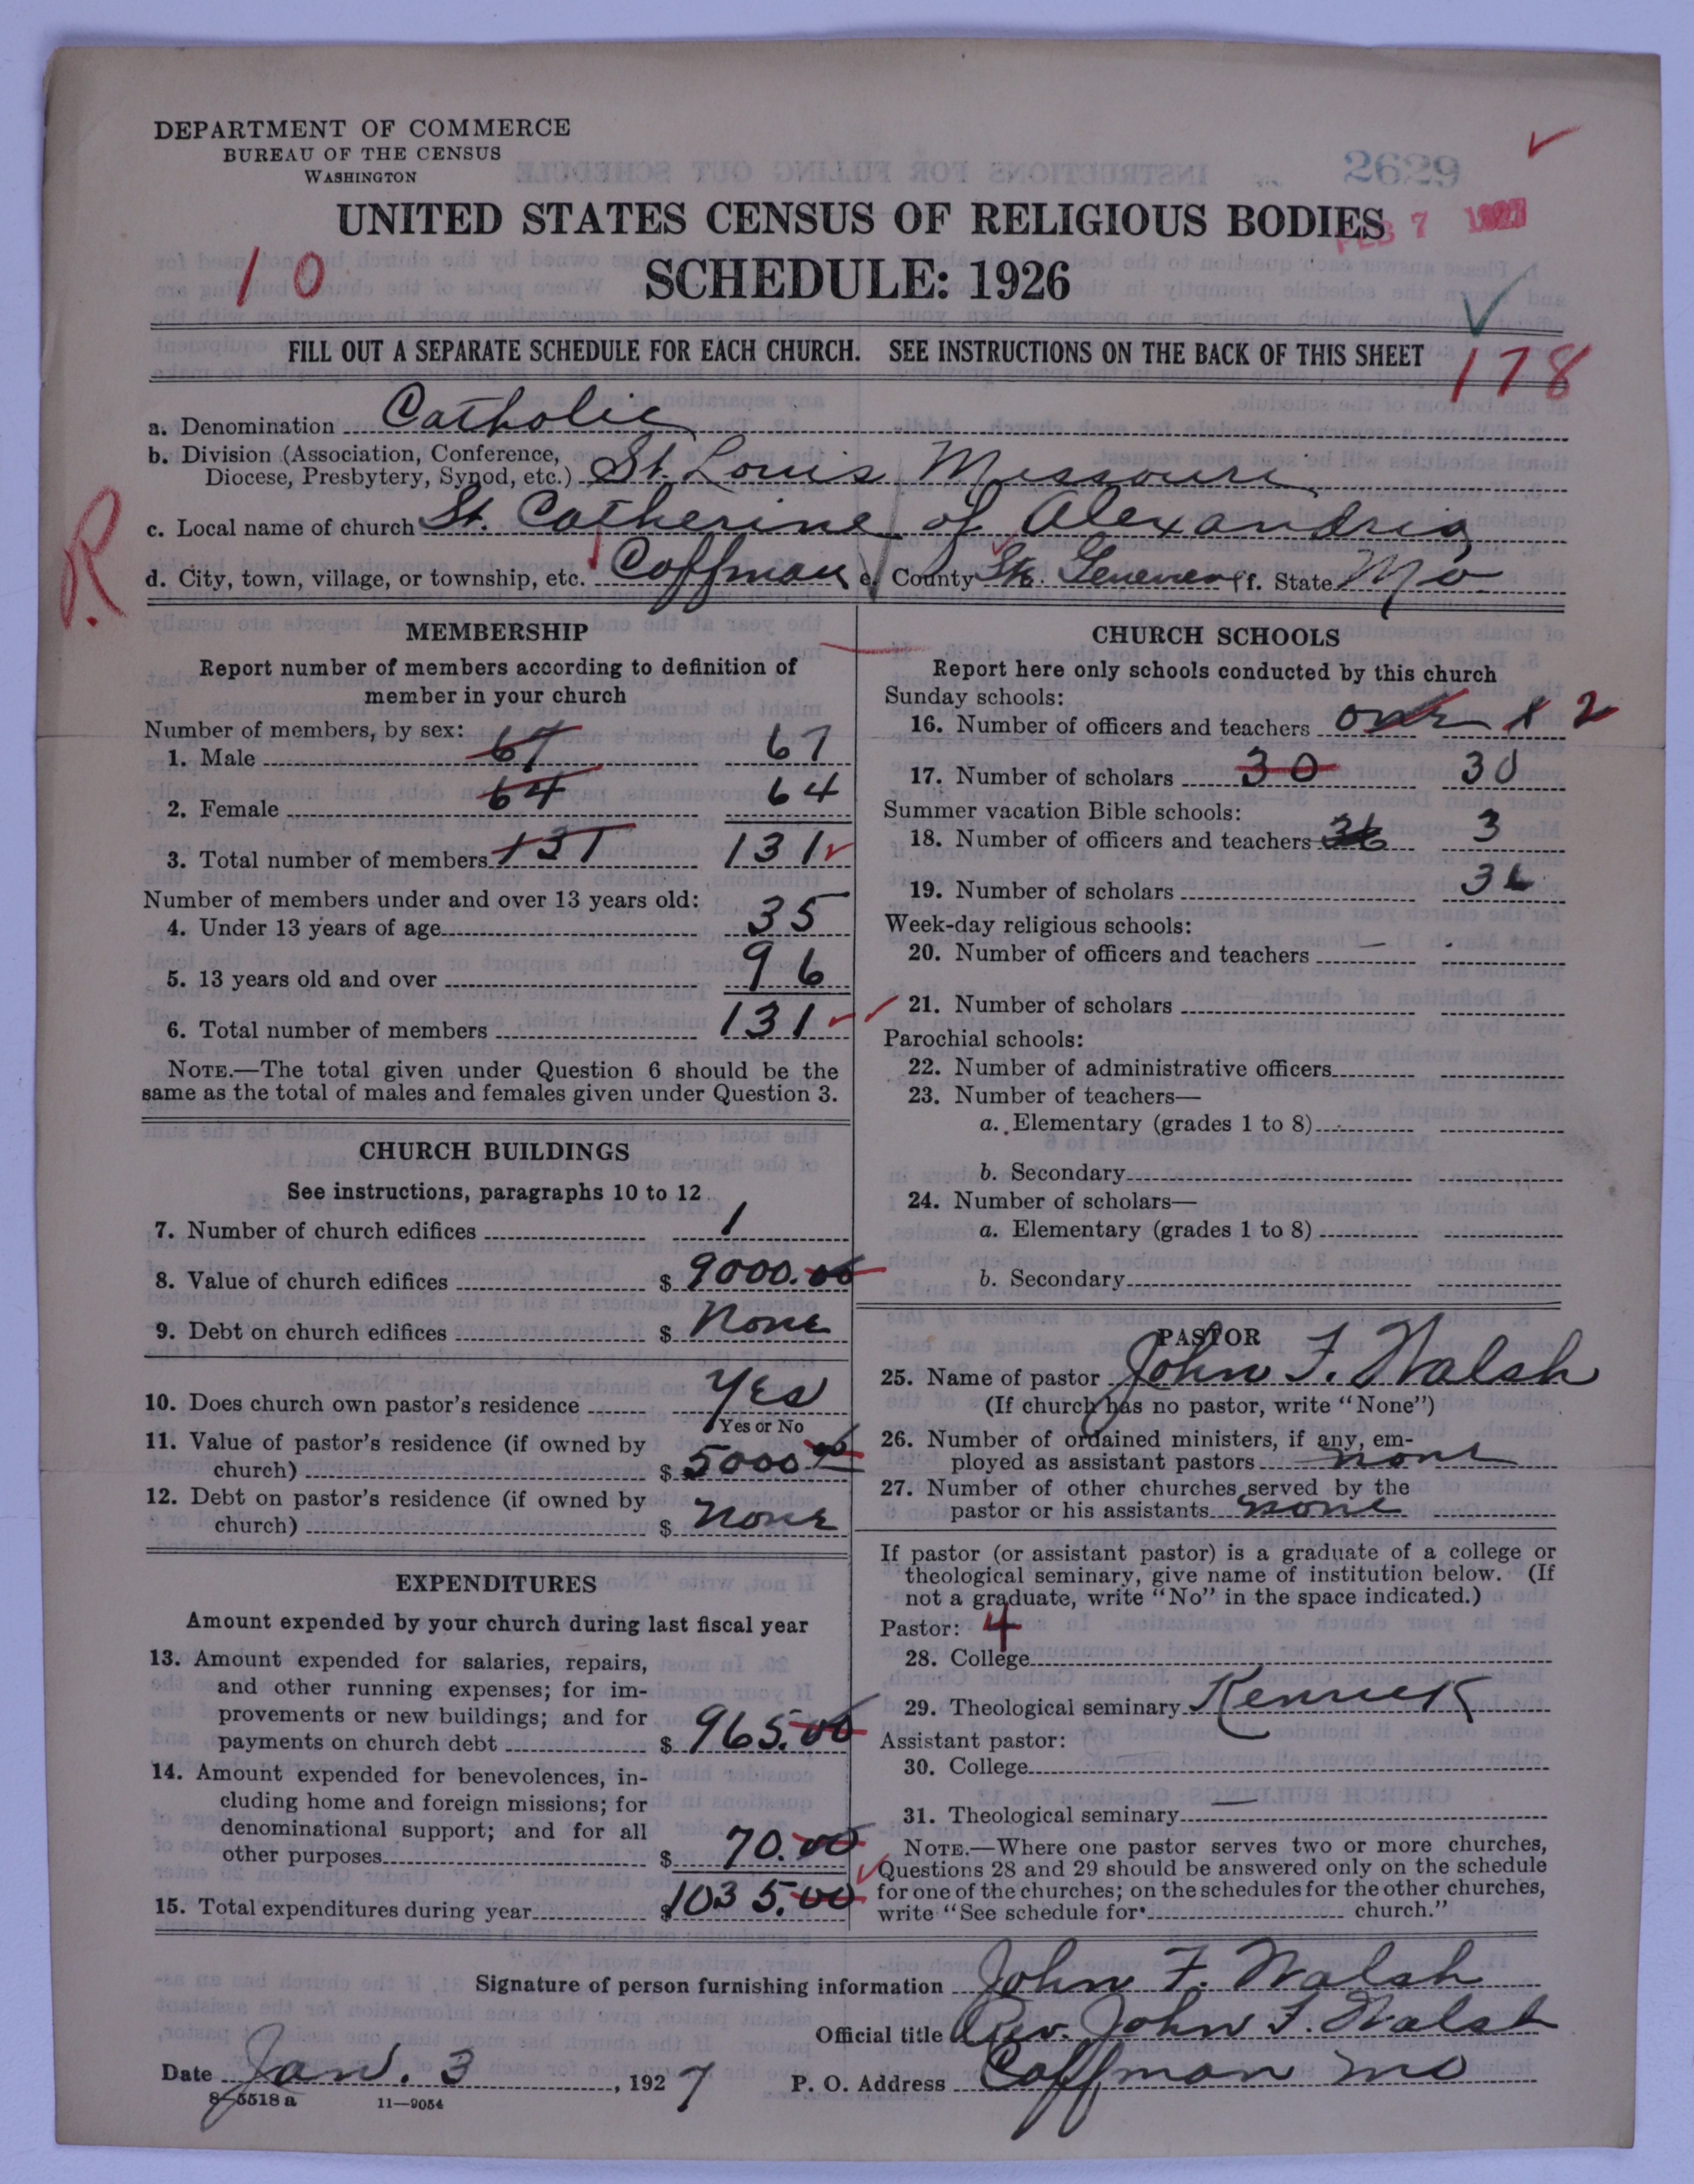 DEPARTMENT OF COMMERCE
BUREAU OF THE CENSUS
WASHINGTON
2629
UNITED STATES CENSUS OF RELIGIOUS BODIES
FEB 7 1927
10
SCHEDULE: 1926
FILL OUT A SEPARATE SCHEDULE FOR EACH CHURCH. SEE INSTRUCTIONS ON THE BACK OF THIS SHEET
178
a. Denomination Catholic
b. Division (Association, Conference,
Diocese, Presbytery, Synod, etc.) St. Louis Missouri
c. Local name of church St. Catherine of Alexandria
R.
d. City, town, village, or township, etc. Coffman e. County Ste. Genevieve f. State Mo
MEMBERSHIP
Report number of members according to definition of
member in your church
Number of members, by sex:
1. Male 67 67
2. Female 64 64
3. Total number of members 131 131
Number of members under and over 13 years old:
4. Under 13 years of age 35
5. 13 years old and over 96
6. Total number of members 131
NOTE.—The total given under Question 6 should be the
same as the total of males and females given under Question 3.
CHURCH BUILDINGS
See instructions, paragraphs 10 to 12
7. Number of church edifices 1
8. Value of church edifices $ 9000.00
9. Debt on church edifices $ None
10. Does church own pastor's residence Yes
Yes or No
11. Value of pastor's residence (if owned by
church) $ 5000.00
12. Debt on pastor's residence (if owned by
church) $ None
EXPENDITURES
Amount expended by your church during last fiscal year
13. Amount expended for salaries, repairs,
and other running expenses; for im-
provements or new buildings; and for
payments on church debt $ 965.00
14. Amount expended for benevolences, in-
cluding home and foreign missions; for
denominational support; and for all
other purposes $ 70.00
15. Total expenditures during year $ 1035.00
CHURCH SCHOOLS
Report here only schools conducted by this church
Sunday schools:
16. Number of officers and teachers one 2
17. Number of scholars 30 30
Summer vacation Bible schools:
18. Number of officers and teachers 36 3
19. Number of scholars 36
Week-day religious schools:
20. Number of officers and teachers
21. Number of scholars
Parochial schools:
22. Number of administrative officers
23. Number of teachers—
a. Elementary (grades 1 to 8)
b. Secondary
24. Number of scholars—
a. Elementary (grades 1 to 8)
b. Secondary
PASTOR
25. Name of pastor John F. Walsh
(If church has no pastor, write "None")
26. Number of ordained ministers, if any, em-
ployed as assistant pastors none
27. Number of other churches served by the
pastor or his assistants none
If pastor (or assistant pastor) is a graduate of a college or
theological seminary, give name of institution below. (If
not a graduate, write "No" in the space indicated.)
Pastor: 4
28. College
29. Theological seminary Kenrick
Assistant pastor:
30. College
31. Theological seminary
NOTE.—Where one pastor serves two or more churches,
Questions 28 and 29 should be answered only on the schedule
for one of the churches; on the schedules for the other churches,
write "See schedule for church."
Signature of person furnishing information John F. Walsh
Official title Rev. John F. Walsh
Date Jan. 3, 1927 P. O. Address Coffman Mo
8-5518a 11—9054